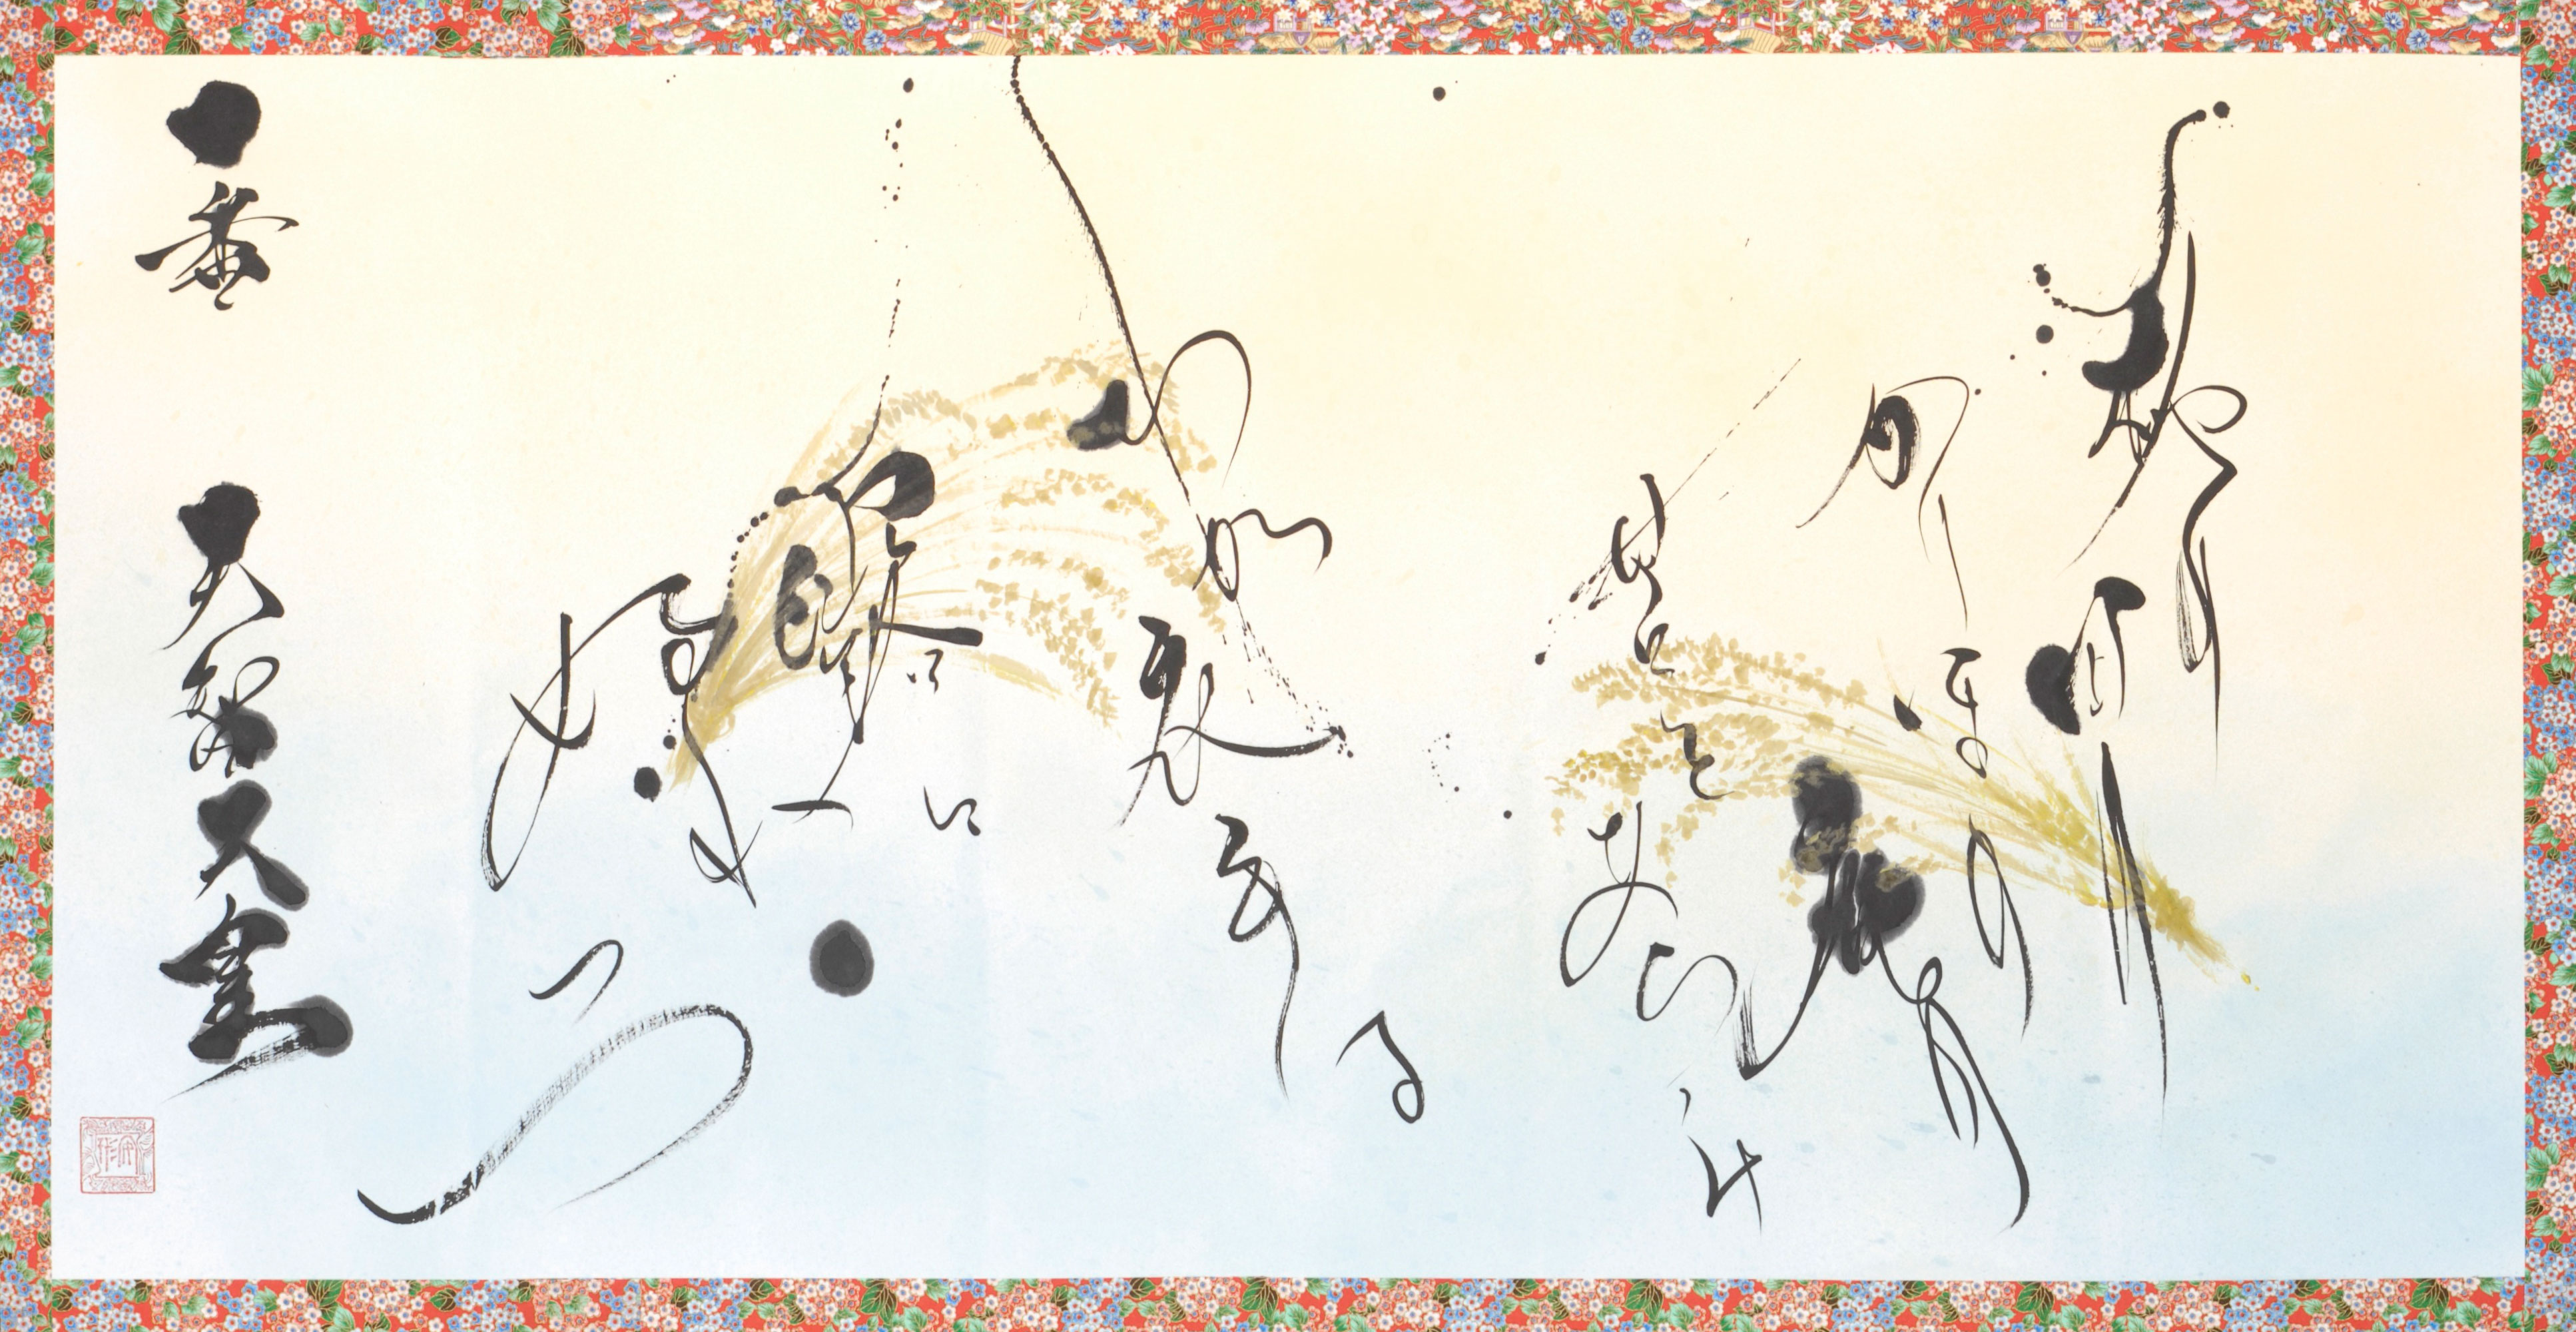 秋の田の
かりほの
庵の
苫をあらみ
わか衣手は
露に
ぬれつつ
一番 天智天皇